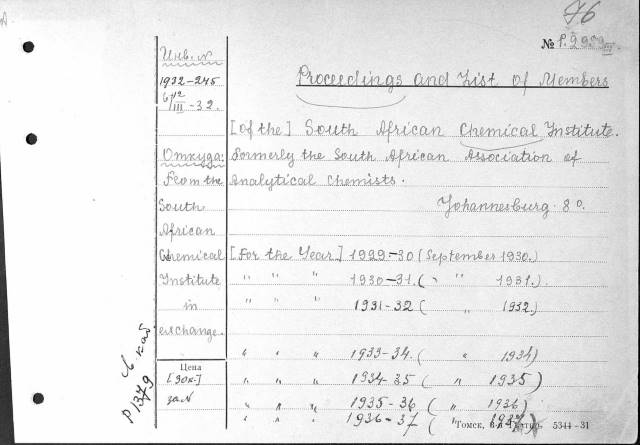 76
№ P. 2959 III
Инв. N
1932-245
6/12 III-32.
Proceedings and List of Members
[of the] South African Chemical Institute.
Откуда: Formerly the South African Association of
From the Analytical Chemists.
South Johannesburg 8°.
African
Chemical [For the Year] 1929-30 (September 1930.)
Institute " " " 1930-31. ( " 1931.)
in " " " 1931-32 ( " 1932.)
exchange.
" " " 1933-34. ( " 1934)
Цена
[30к.] " " " 1934-35 ( " 1935)
за N " " " 1935-36 ( " 1936)
" " " 1936-37 ( 1937)
Томск, 5344-31
р 1379